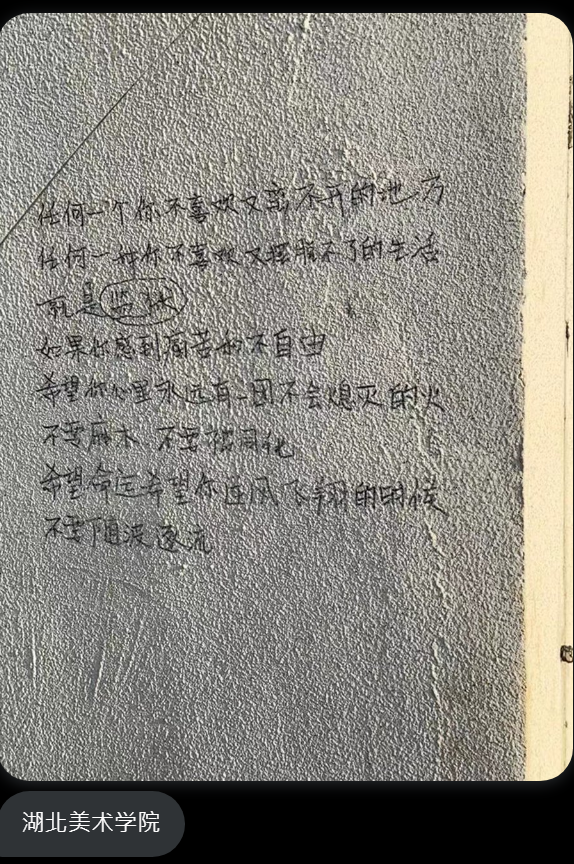 任何一个你不喜欢又离不开的地方
任何一种你不喜欢又摆脱不了的生活
就是监狱
如果你感到痛苦和不自由
希望你心里永远有一团不会熄灭的火
不要麻木 不要被同化
希望命运希望你逆风飞翔的时候
不要随波逐流
湖北美术学院